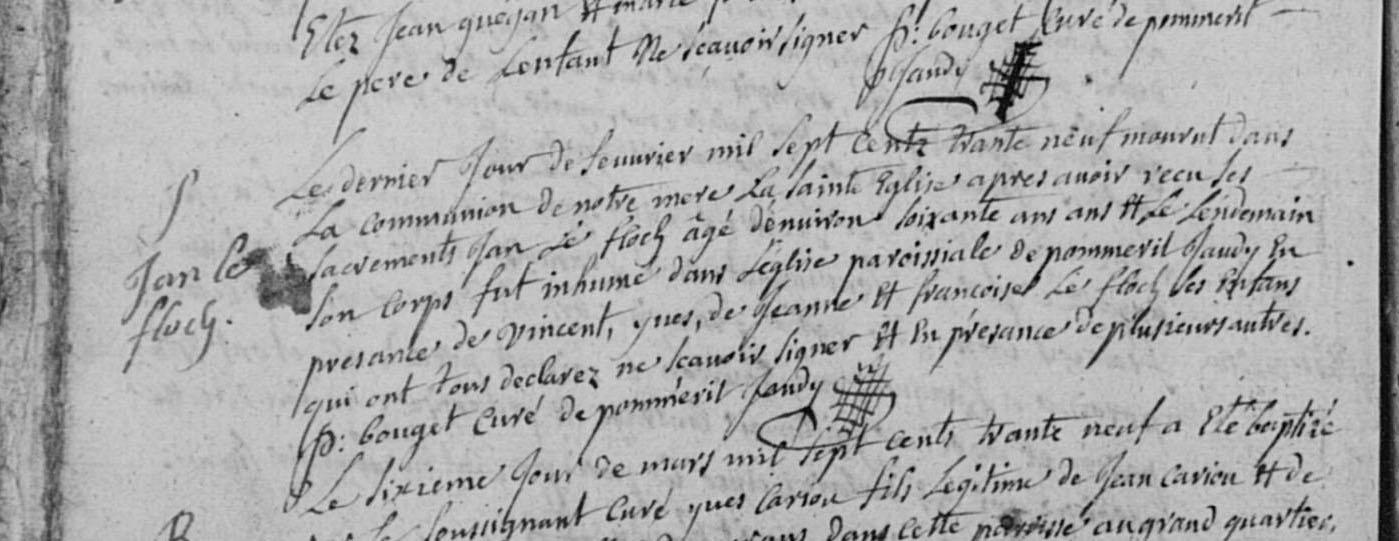 Etez Jean quegan Et marie
Le pere de Lenfant Ne scavoir signer p: bouget Curé de pommerit
Jaudy
S
Jan le
floch.
Le dernier Jour de fevuvrier mil sept Centz trante neuf mourut dans
La communion de notre mere La sainte Eglise apres avoir recu les
sacrements Jan Le floch âgé d'enuiron soixante ans ans Et Le Lendemain
son corps fut inhumé dans L'église paroissiale de pommerit Jaudy En
presance de vincent, yves, de Jeanne Et francoise Le floch ses Enfans
qui ont tous declarez ne scavoir signer Et En présance de plusieurs autres.
p: bouget Curé de pommérit Jaudy
Le sixieme Jour de mars mil sept cents trante neuf a Eté baptizé
soussignant Curé yves Cariou fils Légitime de Jean Cariou Et de
B
dans cette paroisse au grand quartier,